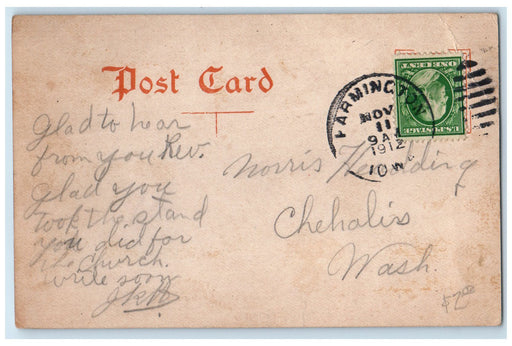 Post Card
FARMINGTON
NOV
11
9 A
1912
IOW
ONE CENT
U.S. POSTAGE
Glad to hear
from you Rev.
glad you
took the stand
you did for
the Church.
write soon
Norris
Chehalis
Wash.
$7.00